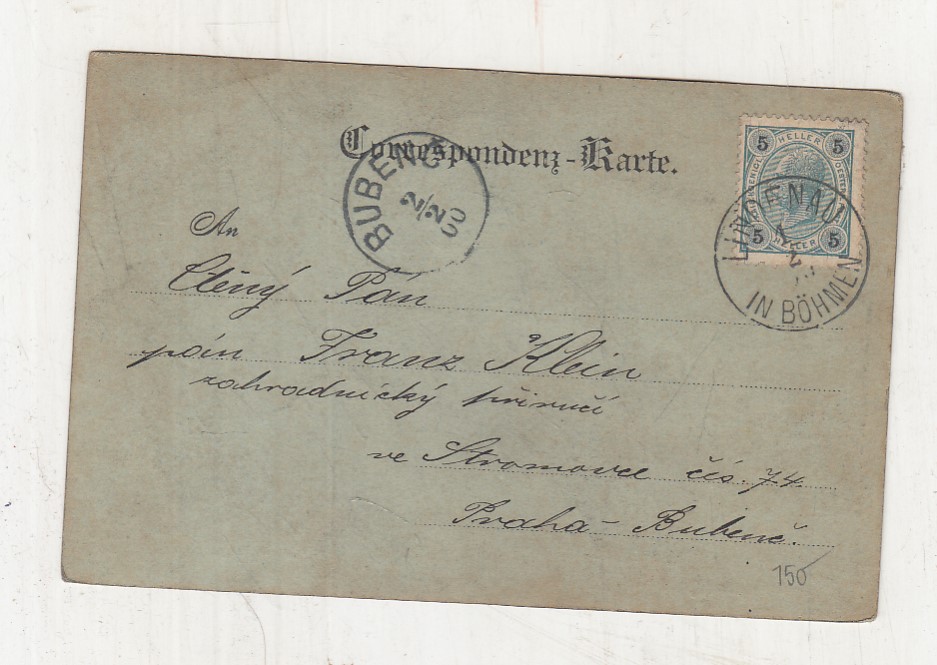 Correspondenz-Karte.
5 HELLER 5
5 HELLER 5
LINDENAU
IN BÖHMEN
BUBENČ
2/2
00
An
Ctěný Pán
pán Franz Klein
zahradnický příručí
ve Stromovce čís. 74.
Praha - Bubenč.
150